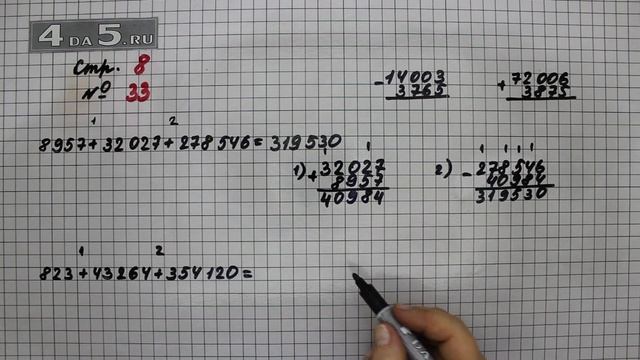 4 DA 5.RU
Стр. 8
№ 33
-14003
3765
+72006
3875
1 2
8957+32027+278546=319530
1) +32027
8957
40984
2) -278546
40984
319530
1 2
823+43264+354120=